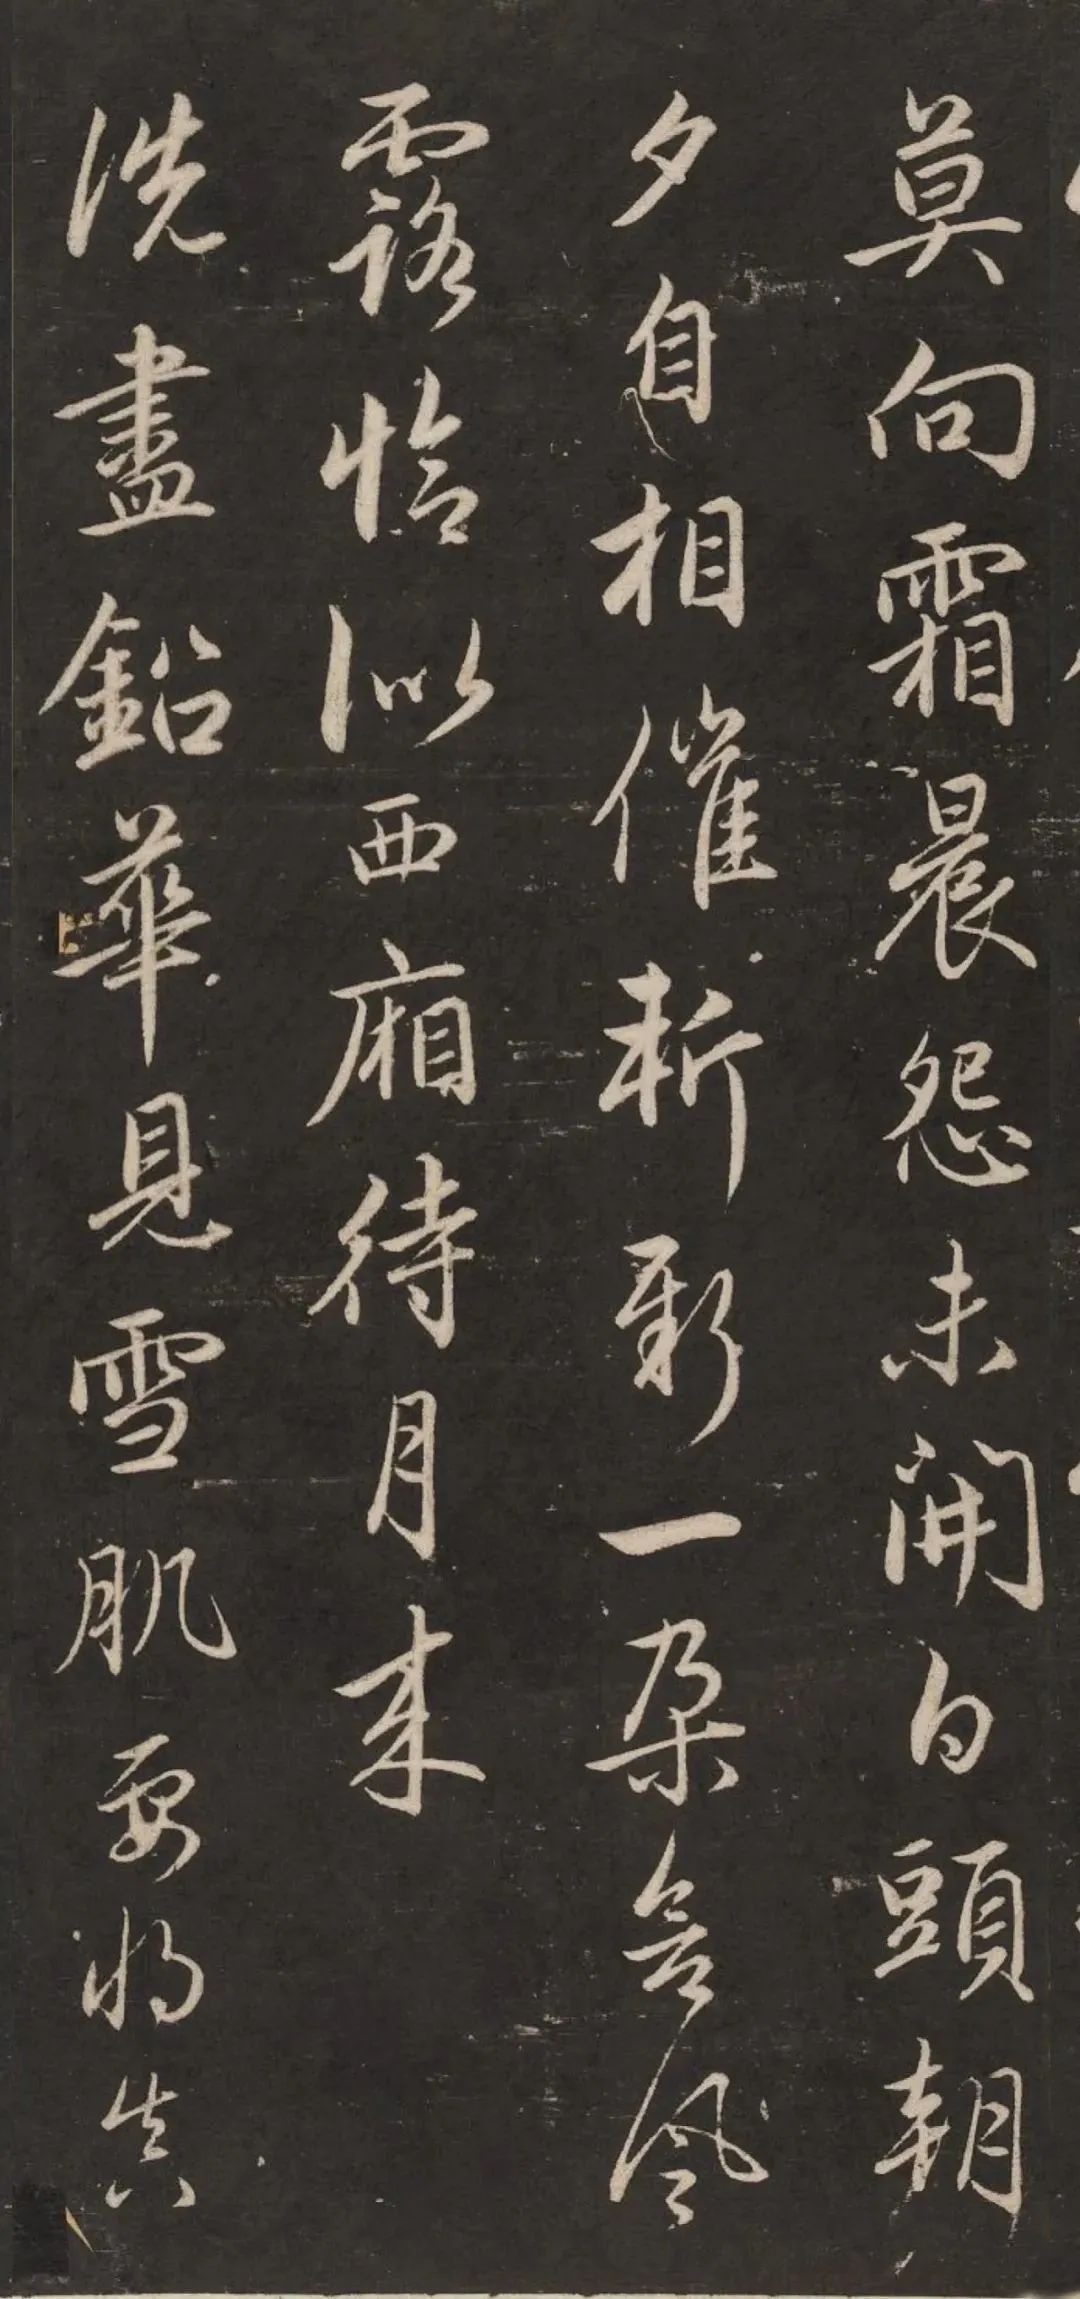 莫向霜晨怨未開白頭朝
夕自相催斬新一朶含風
露恰似西廂待月来
洗盡鉛華見雪肌要將真